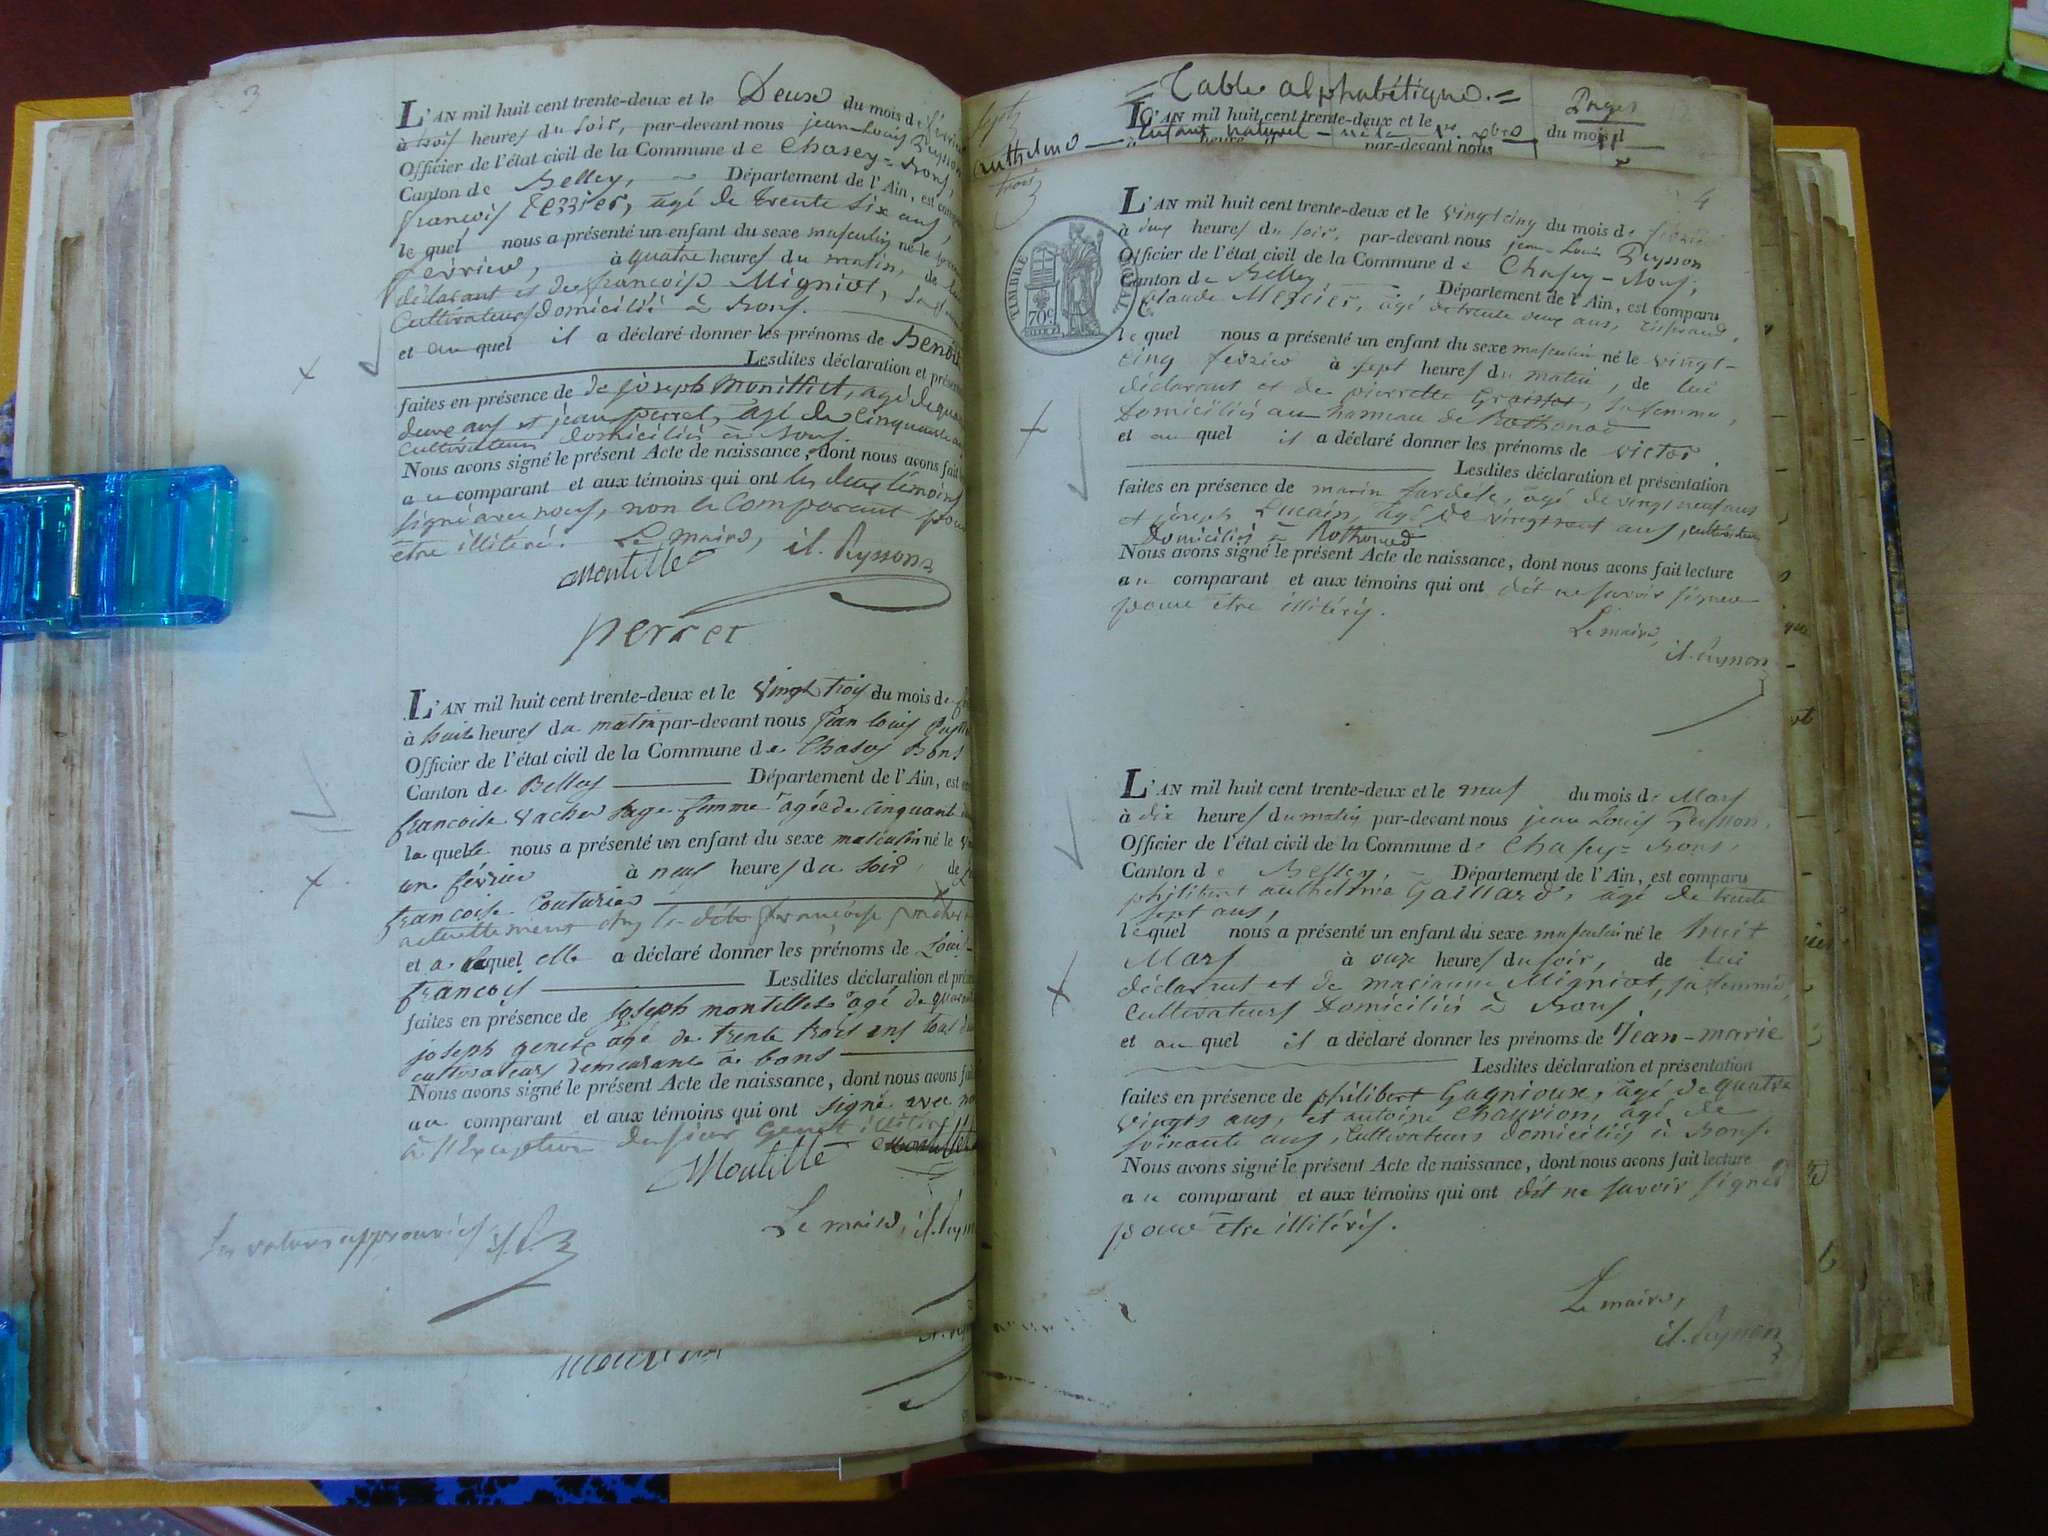 3
L'AN mil huit cent trente-deux et le Deux du mois de
à trois heures du soir, par-devant nous jean-Louis Peysson
Officier de l'état civil de la Commune de Chasey-Bons,
Canton de Belley, Département de l'Ain, est
françois Tessier, agé de trente six ans,
le quel nous a présenté un enfant du sexe masculin né le
février, à quatre heures du matin, de lui
déclarant et de françoise Migniot, sa
Cultivateurs domiciliés à Bons.
et au quel il a déclaré donner les prénoms de Benoit
Lesdites déclaration et
faites en présence de de joseph Montillet, agé de
deux ans et jean perret, agé de Cinquante
Cultivateurs domiciliés à Bons.
Nous avons signé le présent Acte de naissance, dont nous avons fait
au comparant et aux témoins qui ont les deux témoins
signé avec nous, non le Comparant pour
être illitéré. Le maire, jl. Peysson
Montillet
perret
L'AN mil huit cent trente-deux et le Vingt trois du mois de
à huit heures du matin par-devant nous jean louis
Officier de l'état civil de la Commune de Chasey Bons
Canton de Belley Département de l'Ain, est
francoise Vacher sage femme agée de cinquante
la quelle nous a présenté un enfant du sexe masculin né le
un février à neuf heures du soir, de
francoise Couturier
actuellement chez la dite françoise vacher
et a lequel elle a déclaré donner les prénoms de Louis
francois Lesdites déclaration et
faites en présence de joseph montillet agé de
joseph genet agé de trente trois ans tous
cultivateurs demeurants a bons
Nous avons signé le présent Acte de naissance, dont nous avons
au comparant et aux témoins qui ont signé avec
à l'exception du sieur Genet illitéré
Montillet
Le maire, jl.
approuvées
= Table alphabétique. = Pages
L'AN mil huit cent trente-deux et le du mois d
Enfant naturel
heure par-devant nous
anthelme
4
TIMBRE
70c
L'AN mil huit cent trente-deux et le vingt cinq du mois de février
à deux heures du soir, par-devant nous jean-Louis Peysson
Officier de l'état civil de la Commune de Chasey-Bons,
Canton de Belley Département de l'Ain, est comparu
Claude Mercier, agé de trente deux ans, tisserand,
le quel nous a présenté un enfant du sexe masculin né le vingt-
cinq fevrier à sept heures du matin, de lui
déclarant et de pierrette sa femme,
Domiciliés au hameau de Rothonod
et au quel il a déclaré donner les prénoms de victor.
Lesdites déclaration et présentation
faites en présence de marin agé de vingt neuf ans
et joseph Lucain, agé de vingt neuf ans, cultivateurs
Domiciliés à Rothonod
Nous avons signé le présent Acte de naissance, dont nous avons fait lecture
au comparant et aux témoins qui ont dit ne savoir signer
pour être illitérés.
Le maire,
jl. Peysson
L'AN mil huit cent trente-deux et le neuf du mois de Mars
à dix heures du matin par-devant nous jean Louis Peysson,
Officier de l'état civil de la Commune de Chasey-Bons,
Canton de Belley, Département de l'Ain, est comparu
philibert anthelme Gaillard, agé de trente
sept ans,
le quel nous a présenté un enfant du sexe masculin né le huit
Mars à onze heures du soir, de lui
déclarant et de marianne Migniot, sa femme,
Cultivateurs Domiciliés à Bons
et au quel il a déclaré donner les prénoms de Jean-marie
Lesdites déclaration et présentation
faites en présence de philibert Gagnioux, agé de quatre
vingts ans, et antoine Chavrion, agé de
soixante ans, Cultivateurs domiciliés à Bons.
Nous avons signé le présent Acte de naissance, dont nous avons fait lecture
au comparant et aux témoins qui ont dit ne savoir signer
pour être illitérés.
Le maire,
jl. Peysson